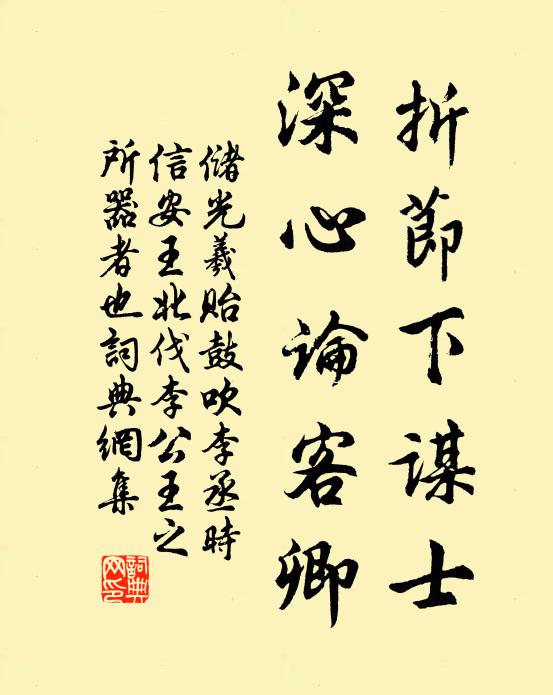 折節下謀士
深心論客卿
儲光羲貽鼓吹李丞時
信安王北伐李公王之
所器者也詞典網集
詞典
网印